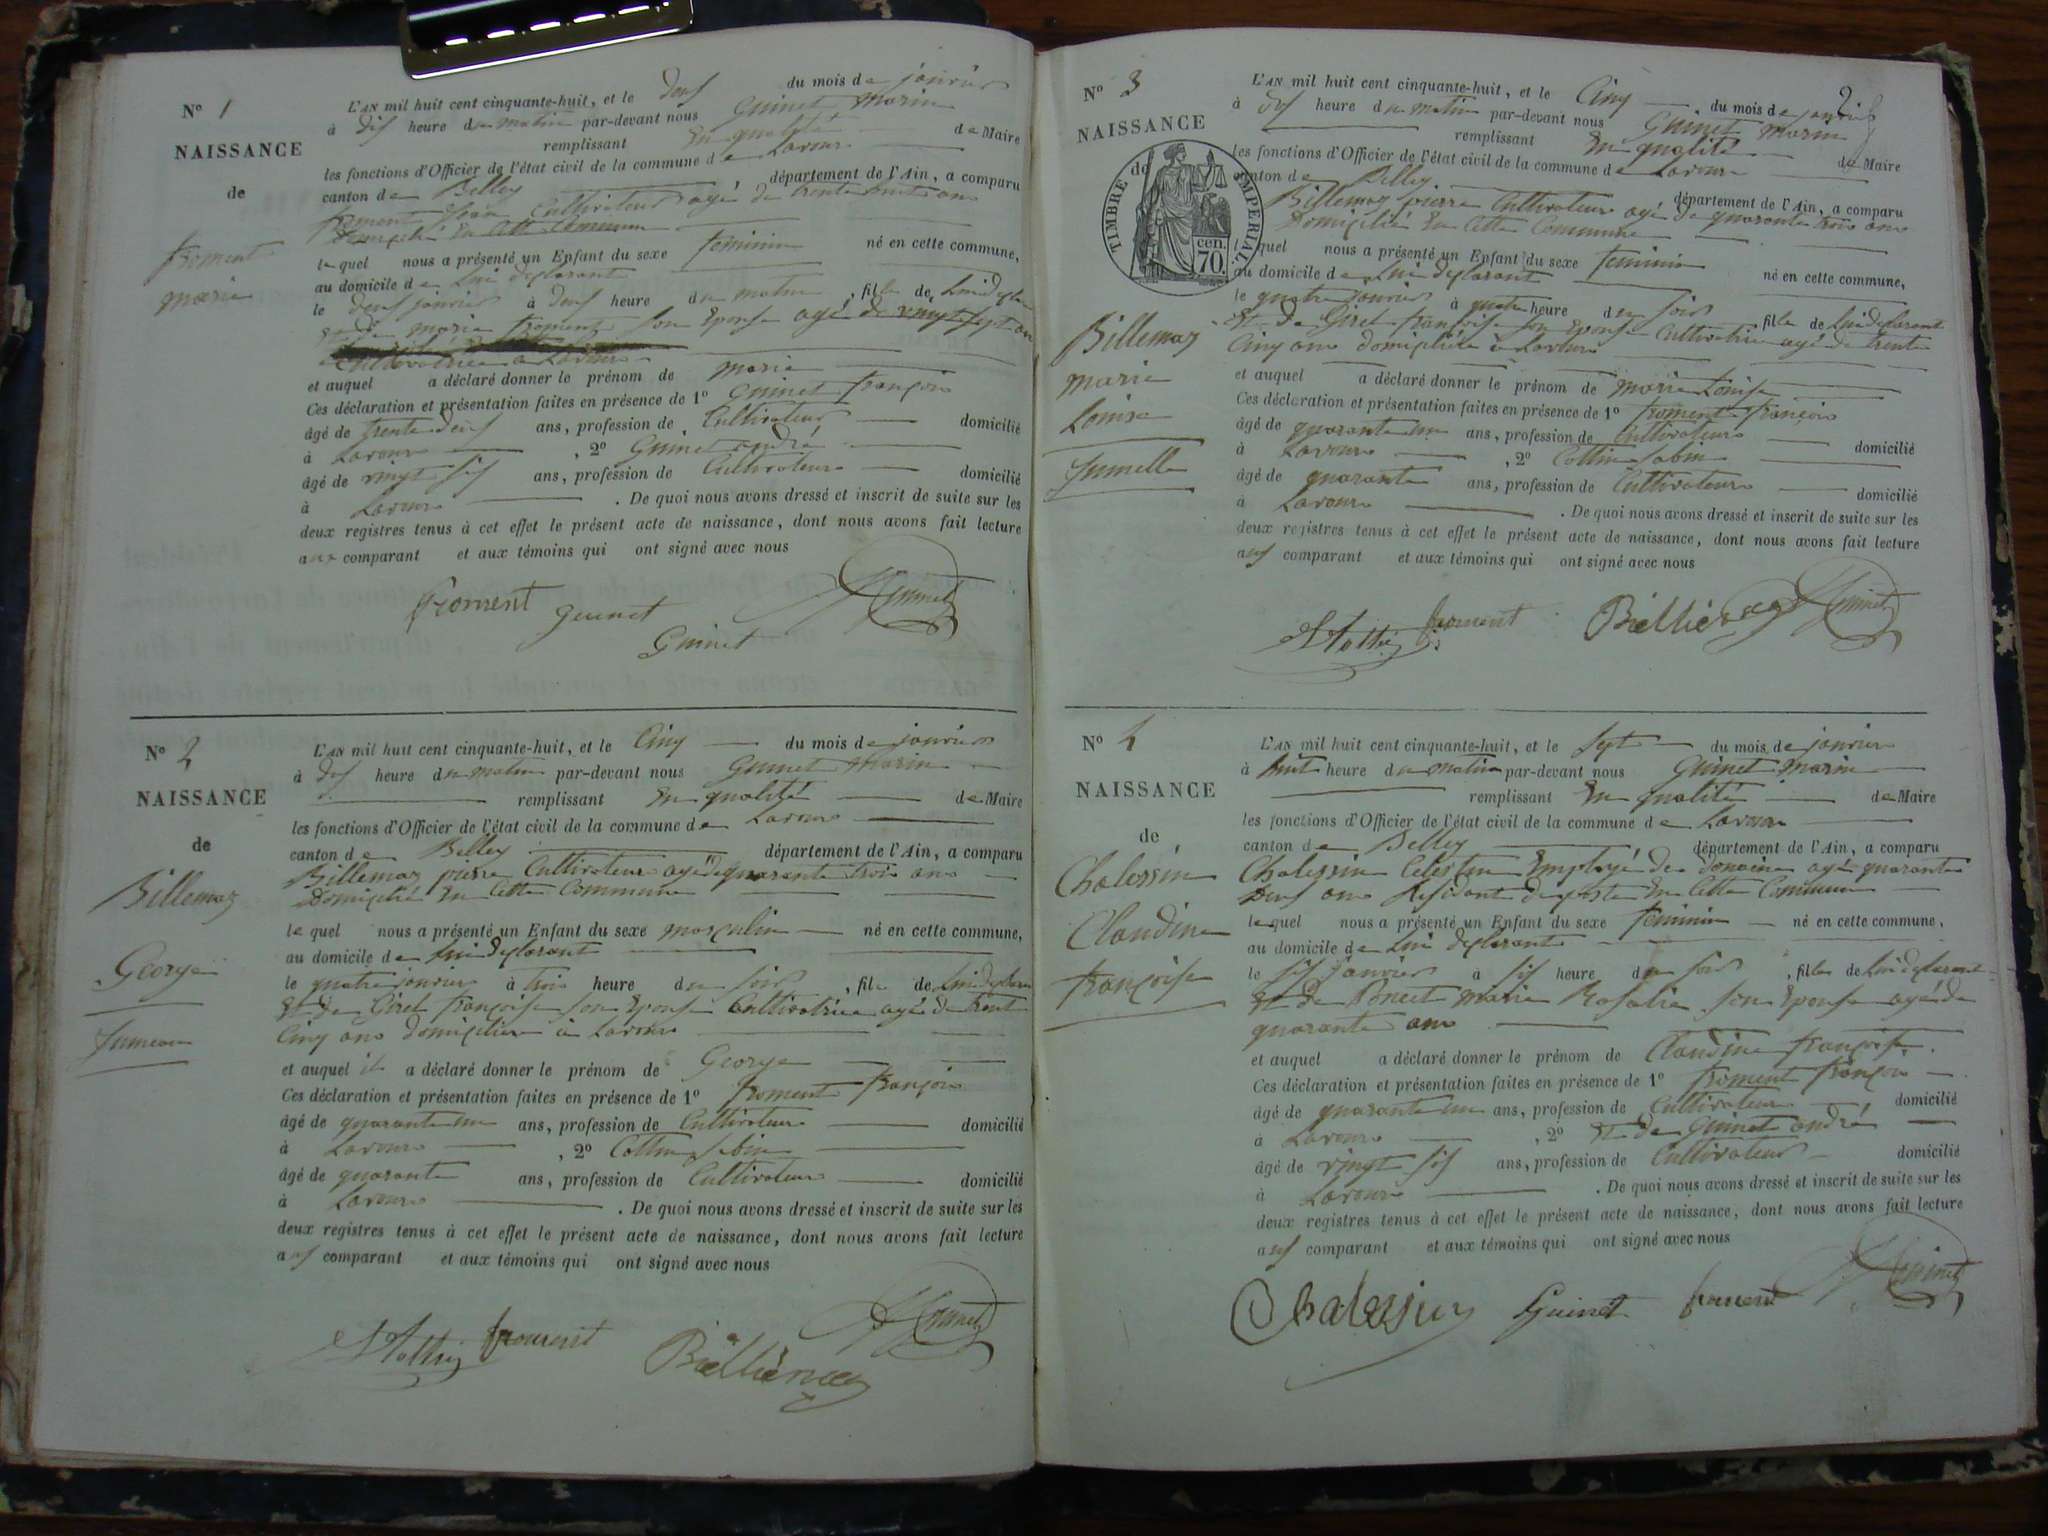 N° 1
NAISSANCE
de
froment
marie
L'AN mil huit cent cinquante-huit, et le deux du mois de janvier
à dix heure du matin par-devant nous Guinet marin
remplissant en qualité de Maire
les fonctions d'Officier de l'état civil de la commune de Lavour
canton de Belley département de l'Ain, a comparu
froment jean Cultivateur agé de trente huit ans
Domicilié en cette commune
lequel nous a présenté un Enfant du sexe feminin né en cette commune,
au domicile de lui déclarant
le deux janvier à deux heure du matin, fille de lui déclarant
et de marie froment son épouse agé de vingt sept ans
Cultivatrice a Lavour
et auquel a déclaré donner le prénom de marie
Ces déclaration et présentation faites en présence de 1° Guinet françois
âgé de trente deux ans, profession de Cultivateur domicilié
à Lavour, 2° Guinet andré
âgé de vingt six ans, profession de Cultivateur domicilié
à Lavour. De quoi nous avons dressé et inscrit de suite sur les
deux registres tenus à cet effet le présent acte de naissance, dont nous avons fait lecture
aux comparant et aux témoins qui ont signé avec nous
froment guinet Guinet
Guinet
N° 2
NAISSANCE
de
Billemaz
George
Jumeau
L'AN mil huit cent cinquante-huit, et le Cinq du mois de janvier
à dix heure du matin par-devant nous Guinet marin
remplissant en qualité de Maire
les fonctions d'Officier de l'état civil de la commune de Lavour
canton de Belley département de l'Ain, a comparu
Billemaz pierre Cultivateur agé de quarante trois ans
Domicilié en cette Commune
lequel nous a présenté un Enfant du sexe masculin né en cette commune,
au domicile de lui déclarant
le quatre janvier à trois heure du soir, fils de lui déclarant
et de Giret françoise son épouse Cultivatrice agé de trente
Cinq ans domicilier a Lavour
et auquel il a déclaré donner le prénom de George
Ces déclaration et présentation faites en présence de 1° froment françois
âgé de quarante un ans, profession de Cultivateur domicilié
à Lavour, 2° Cottin sabin
âgé de quarante ans, profession de Cultivateur domicilié
à Lavour. De quoi nous avons dressé et inscrit de suite sur les
deux registres tenus à cet effet le présent acte de naissance, dont nous avons fait lecture
aux comparant et aux témoins qui ont signé avec nous
froment Guinet
2
N° 3
NAISSANCE
de
TIMBRE IMPERIAL
70 cen.
Billemaz
marie
Louise
Jumelle
L'AN mil huit cent cinquante-huit, et le Cinq du mois de janvier
à dix heure du matin par-devant nous Guinet marin
remplissant en qualité de Maire
les fonctions d'Officier de l'état civil de la commune de Lavour
canton de Belley département de l'Ain, a comparu
Billemaz pierre Cultivateur agé de quarante trois ans
Domicilié en cette Commune
lequel nous a présenté un Enfant du sexe feminin né en cette commune,
au domicile de lui déclarant
le quatre janvier à quatre heure du soir, fille de lui déclarant
et de Giret françoise son épouse Cultivatrice agé de trente
Cinq ans domiciliée a Lavour
et auquel a déclaré donner le prénom de marie Louise
Ces déclaration et présentation faites en présence de 1° froment françois
âgé de quarante un ans, profession de Cultivateur domicilié
à Lavour, 2° Cottin sabin
âgé de quarante ans, profession de Cultivateur domicilié
à Lavour. De quoi nous avons dressé et inscrit de suite sur les
deux registres tenus à cet effet le présent acte de naissance, dont nous avons fait lecture
aux comparant et aux témoins qui ont signé avec nous
froment Guinet
N° 4
NAISSANCE
de
Chalessin
Claudine
françoise
L'AN mil huit cent cinquante-huit, et le Sept du mois de janvier
à huit heure du matin par-devant nous Guinet marin
remplissant en qualité de Maire
les fonctions d'Officier de l'état civil de la commune de Lavour
canton de Belley département de l'Ain, a comparu
Chalessin Celestin Employé de douane agé quarante
deux ans Residant de poste en cette Commune
lequel nous a présenté un Enfant du sexe feminin né en cette commune,
au domicile de lui déclarant
le six janvier à six heure du soir, fille de lui déclarant
et de marie Rosalie son épouse agé de
quarante ans
et auquel a déclaré donner le prénom de Claudine françoise
Ces déclaration et présentation faites en présence de 1° froment françois
âgé de quarante un ans, profession de Cultivateur domicilié
à Lavour, 2° et de Guinet andré
âgé de vingt six ans, profession de Cultivateur domicilié
à Lavour. De quoi nous avons dressé et inscrit de suite sur les
deux registres tenus à cet effet le présent acte de naissance, dont nous avons fait lecture
aux comparant et aux témoins qui ont signé avec nous
Chalessin Guinet froment Guinet